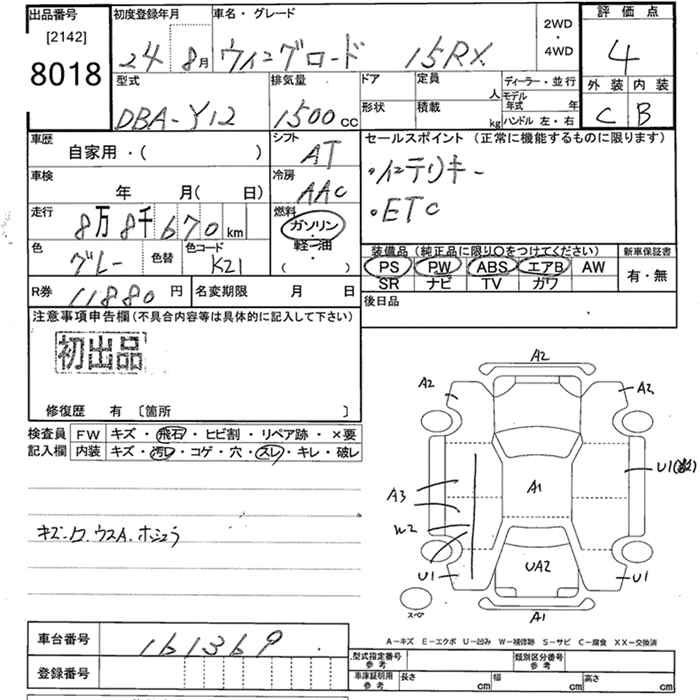 出品番号 [2142] 8018
初度登録年月 24 8月
車名・グレード ウィングロード 15RX
2WD・4WD
評価点 4
外装 C 内装 B
型式 DBA-Y12
排気量 1500cc
ドア
形状
定員 人
積載 kg
ディーラー・並行
モデル年式 年
ハンドル 左・右
車歴 自家用・( )
シフト AT
車検 年 月( 日)
冷房 AAC
走行 8万8千670km
燃料 ガソリン・軽油・( )
色 グレー 色替 色コード K21
R券 11880円
名変期限 月 日
セールスポイント (正常に機能するものに限ります)
・インテリキー
・ETC
装備品 (純正品に限り○をつけてください)
PS PW ABS エアB AW
SR ナビ TV カワ
新車保証書 有・無
後日品
注意事項申告欄(不具合内容等は具体的に記入して下さい)
初出品
修復歴 有 〔箇所 〕
検査員記入欄
FW キズ・飛石・ヒビ割・リペア跡・×要
内装 キズ・汚レ・コゲ・穴・スレ・キレ・破レ
A2
A2 A2
A3 A1 U1
W2
U1 UA2 U1
スペ A1
A-キズ E-エクボ U-凹み W-補修跡 S-サビ C-腐食 XX-交換済
車台番号 161369
登録番号
型式指定番号 参考
類別区分番号 参考
車庫証明用 参考 長さ cm 幅 cm 高さ cm